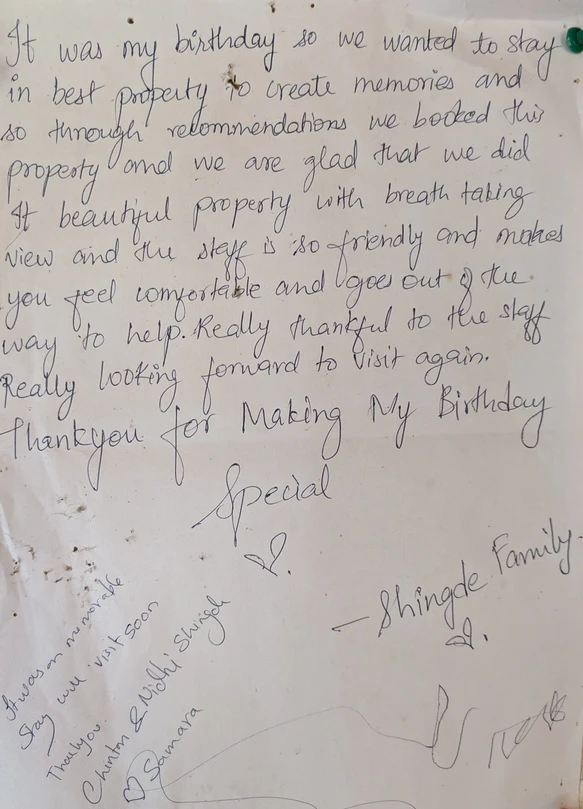 It was my birthday so we wanted to stay
in best property to create memories and
so through recommendations we booked this
property and we are glad that we did
It beautiful property with breath taking
view and the staff is so friendly and makes
you feel comfortable and goes out of the
way to help. Really thankful to the staff
Really looking forward to visit again.
Thankyou for Making My Birthday
Special
— Shingde Family.
It was on memorable
Stay will visit soon
Thankyou
Chintan & Nidhi Shingde
Samara